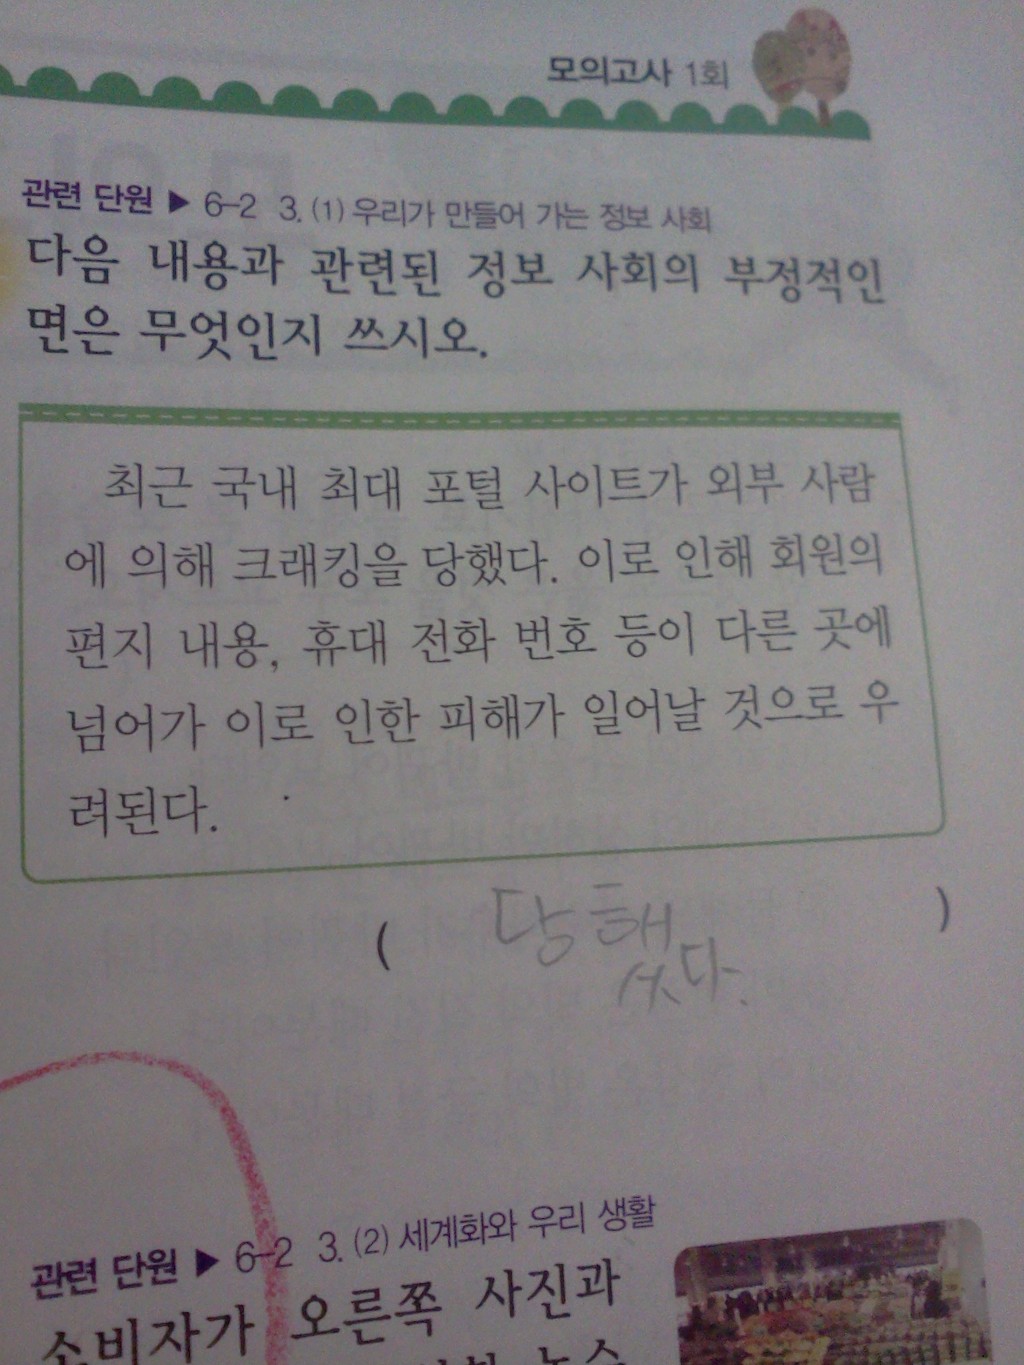 모의고사 1회
관련 단원 ▶ 6-2 3. (1) 우리가 만들어 가는 정보 사회
다음 내용과 관련된 정보 사회의 부정적인
면은 무엇인지 쓰시오.
최근 국내 최대 포털 사이트가 외부 사람
에 의해 크래킹을 당했다. 이로 인해 회원의
편지 내용, 휴대 전화 번호 등이 다른 곳에
넘어가 이로 인한 피해가 일어날 것으로 우
려된다.
( 당했다. )
관련 단원 ▶ 6-2 3. (2) 세계화와 우리 생활
소비자가 오른쪽 사진과